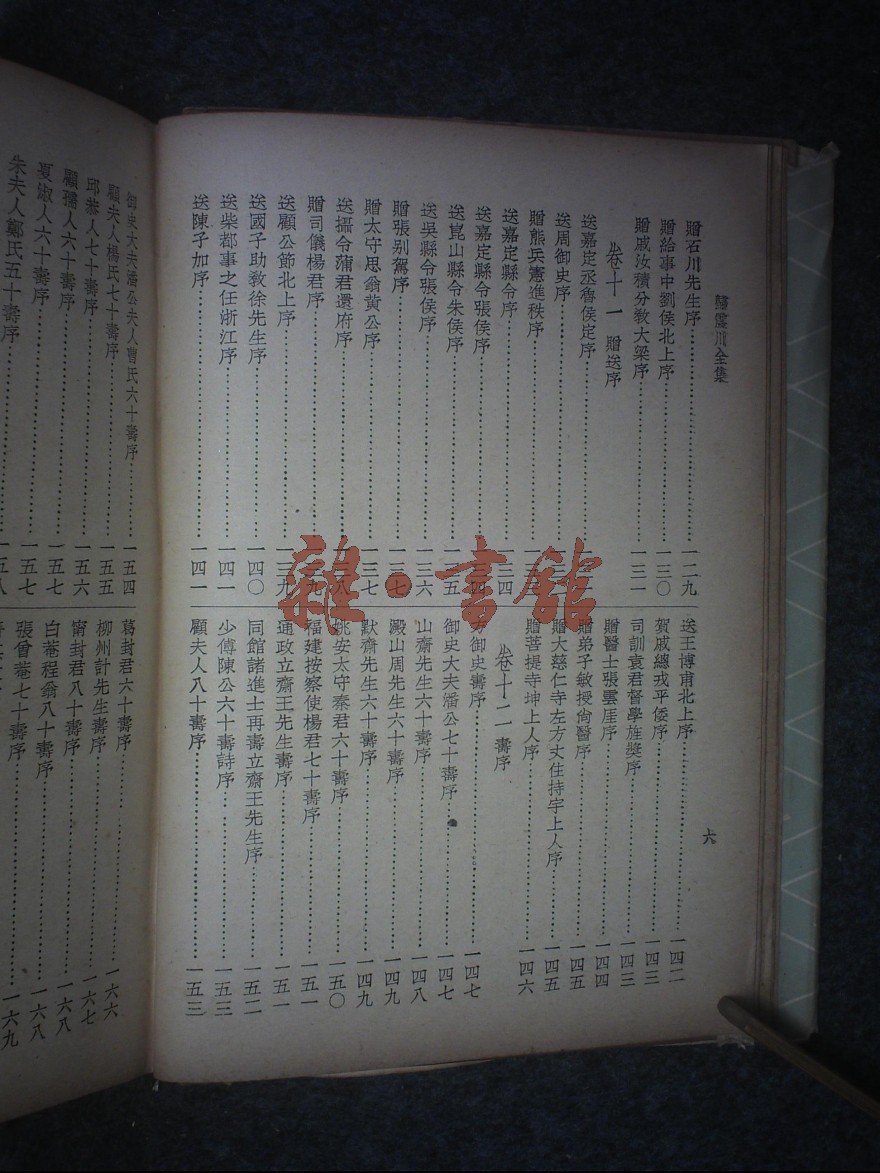 歸震川全集
六
贈石川先生序 一二九
贈給事中劉侯北上序 一三〇
贈戚汝積分敎大梁序 一三一
卷十一 贈送序
送嘉定丞魯侯定序
送周御史序
贈熊兵憲進秩序
送嘉定縣令序
送嘉定縣令張侯序
送崑山縣令朱侯序
送吳縣令張侯序 一三六
贈張别駕序 一三七
贈太守思翁黄公序 一三七
送攝令蒲君還府序
贈司儀楊君序
送顧公節北上序 一三九
送國子助敎徐先生序 一四〇
送柴都事之任浙江序 一四一
送陳子加序 一四一
送王博甫北上序 一四二
賀戚總戎平倭序 一四三
司訓袁君督學旌奬序 一四三
贈醫士張雲厓序 一四四
贈弟子敏授尙醫序 一四五
贈大慈仁寺左方丈住持宇上人序 一四五
贈菩提寺坤上人序 一四六
卷十二 壽序
方御史壽序 一四七
御史大夫潘公七十壽序 一四七
山齋先生六十壽序 一四八
澱山周先生六十壽序 一四九
默齋先生六十壽序 一四九
姚安太守秦君六十壽序 一五〇
福建按察使楊君七十壽序 一五一
通政立齋王先生壽序 一五一
同館諸進士再壽立齋王先生序 一五二
少傅陳公六十壽詩序 一五三
顧夫人八十壽序 一五三
御史大夫潘公夫人曹氏六十壽序 一五四
顧夫人楊氏七十壽序 一五五
邱恭人七十壽序 一五六
顧孺人六十壽序 一五七
夏淑人六十壽序 一五七
朱夫人鄭氏五十壽序 一五八
葛封君六十壽序 一六六
柳州計先生壽序 一六七
甯封君八十壽序 一六八
白菴程翁八十壽序 一六八
張曾菴七十壽序 一六九
雜·書館